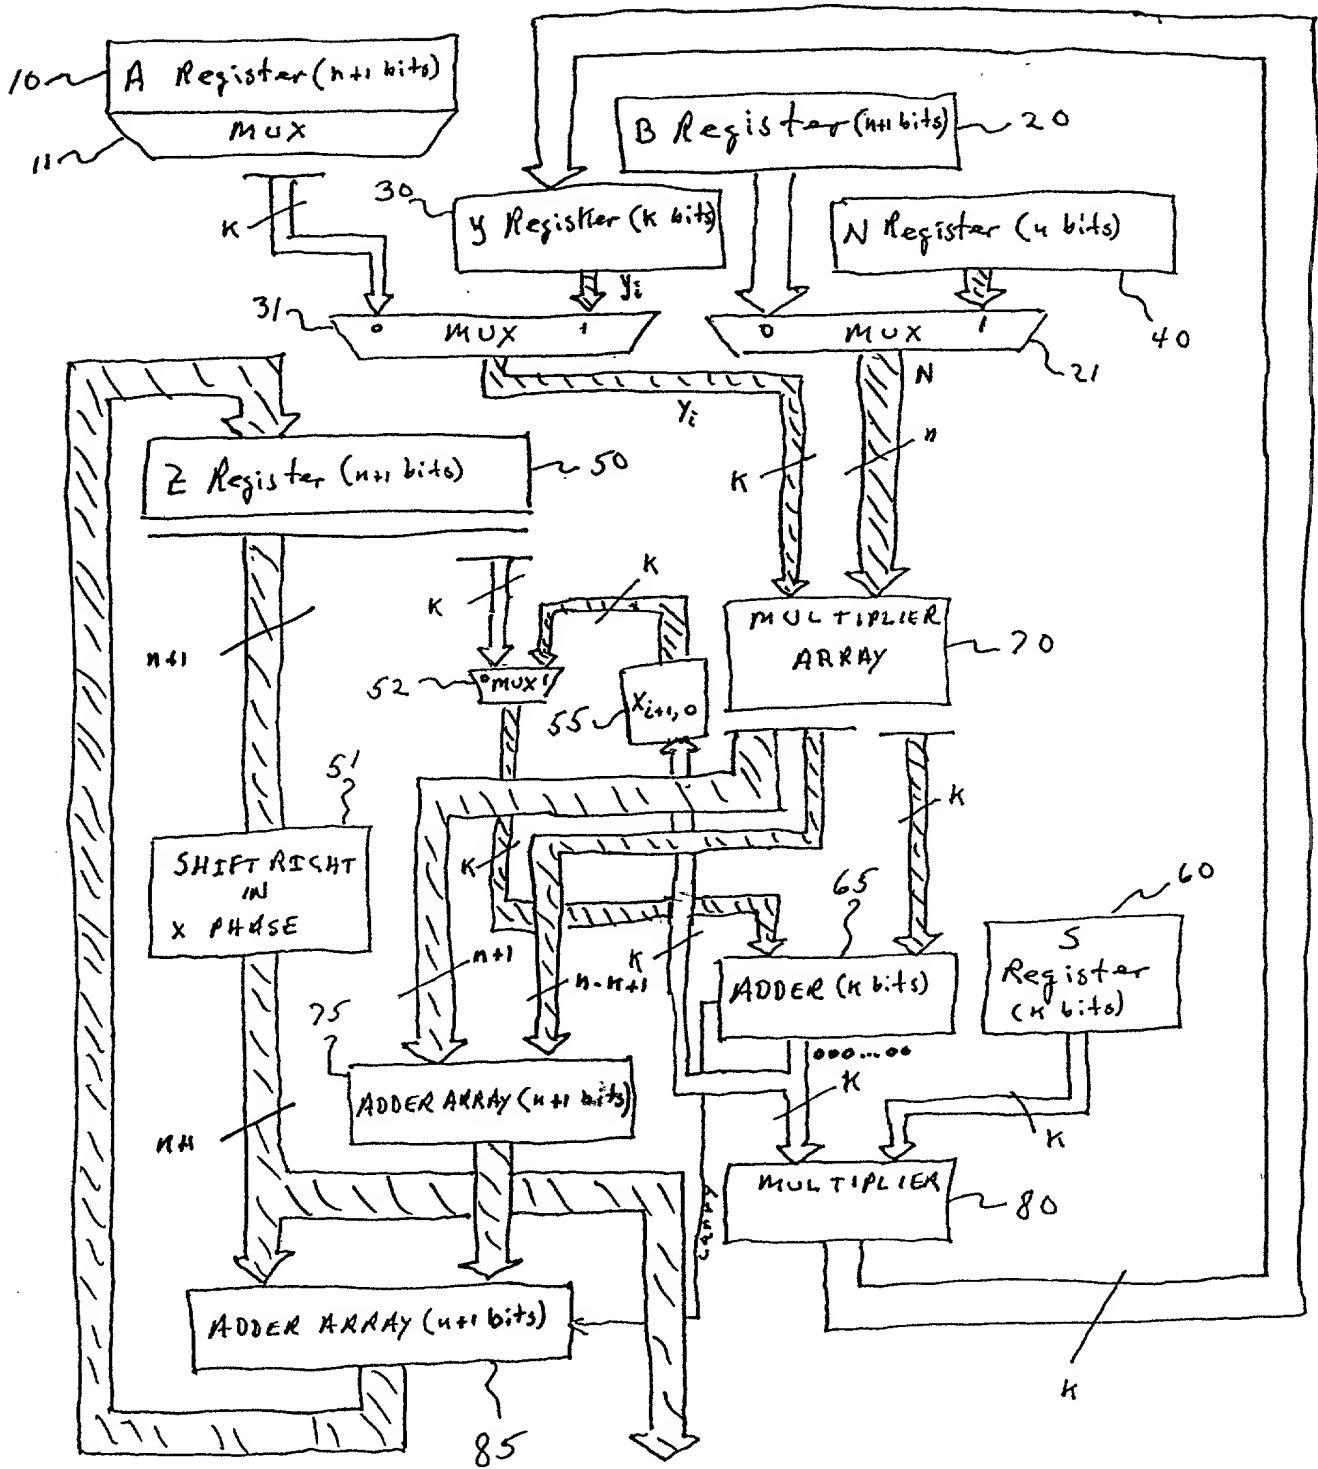 10
A Register (n+1 bits)
MUX
11
B Register (n+1 bits)
20
K
30
Y Register (K bits)
N Register (n bits)
yi
31
0 MUX 1
0 MUX 1
40
21
N
yi
Z Register (n+1 bits)
50
K
n
K
K
n+1
MULTIPLIER
ARRAY
70
52
0 MUX 1
55
Xi+1,0
51
K
SHIFT RIGHT
IN
X PHASE
K
65
60
n+1
n-K+1
K
ADDER (K bits)
S
Register
(K bits)
75
000...00
ADDER ARRAY (n+1 bits)
K
K
n+1
MULTIPLIER
80
carry
ADDER ARRAY (n+1 bits)
85
K